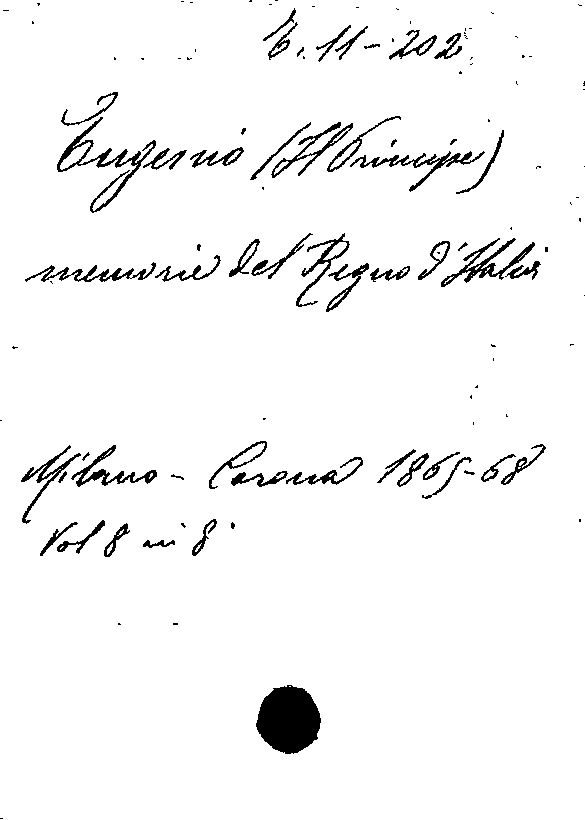 E. 11-202
Eugenio (Il Principe)
memorie del Regno d'Italia
Milano - Corona 1865-68
Vol 8 in 8°